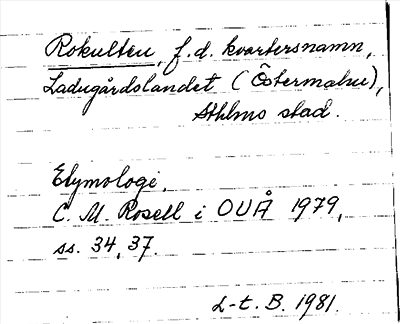 Rokulten, f.d. kvartersnamn,
Ladugårdslandet (Östermalm),
Sthlms stad.
Etymologi,
C. M. Rosell i OUÅ 1979,
ss. 34, 37.
L-t. B. 1981.